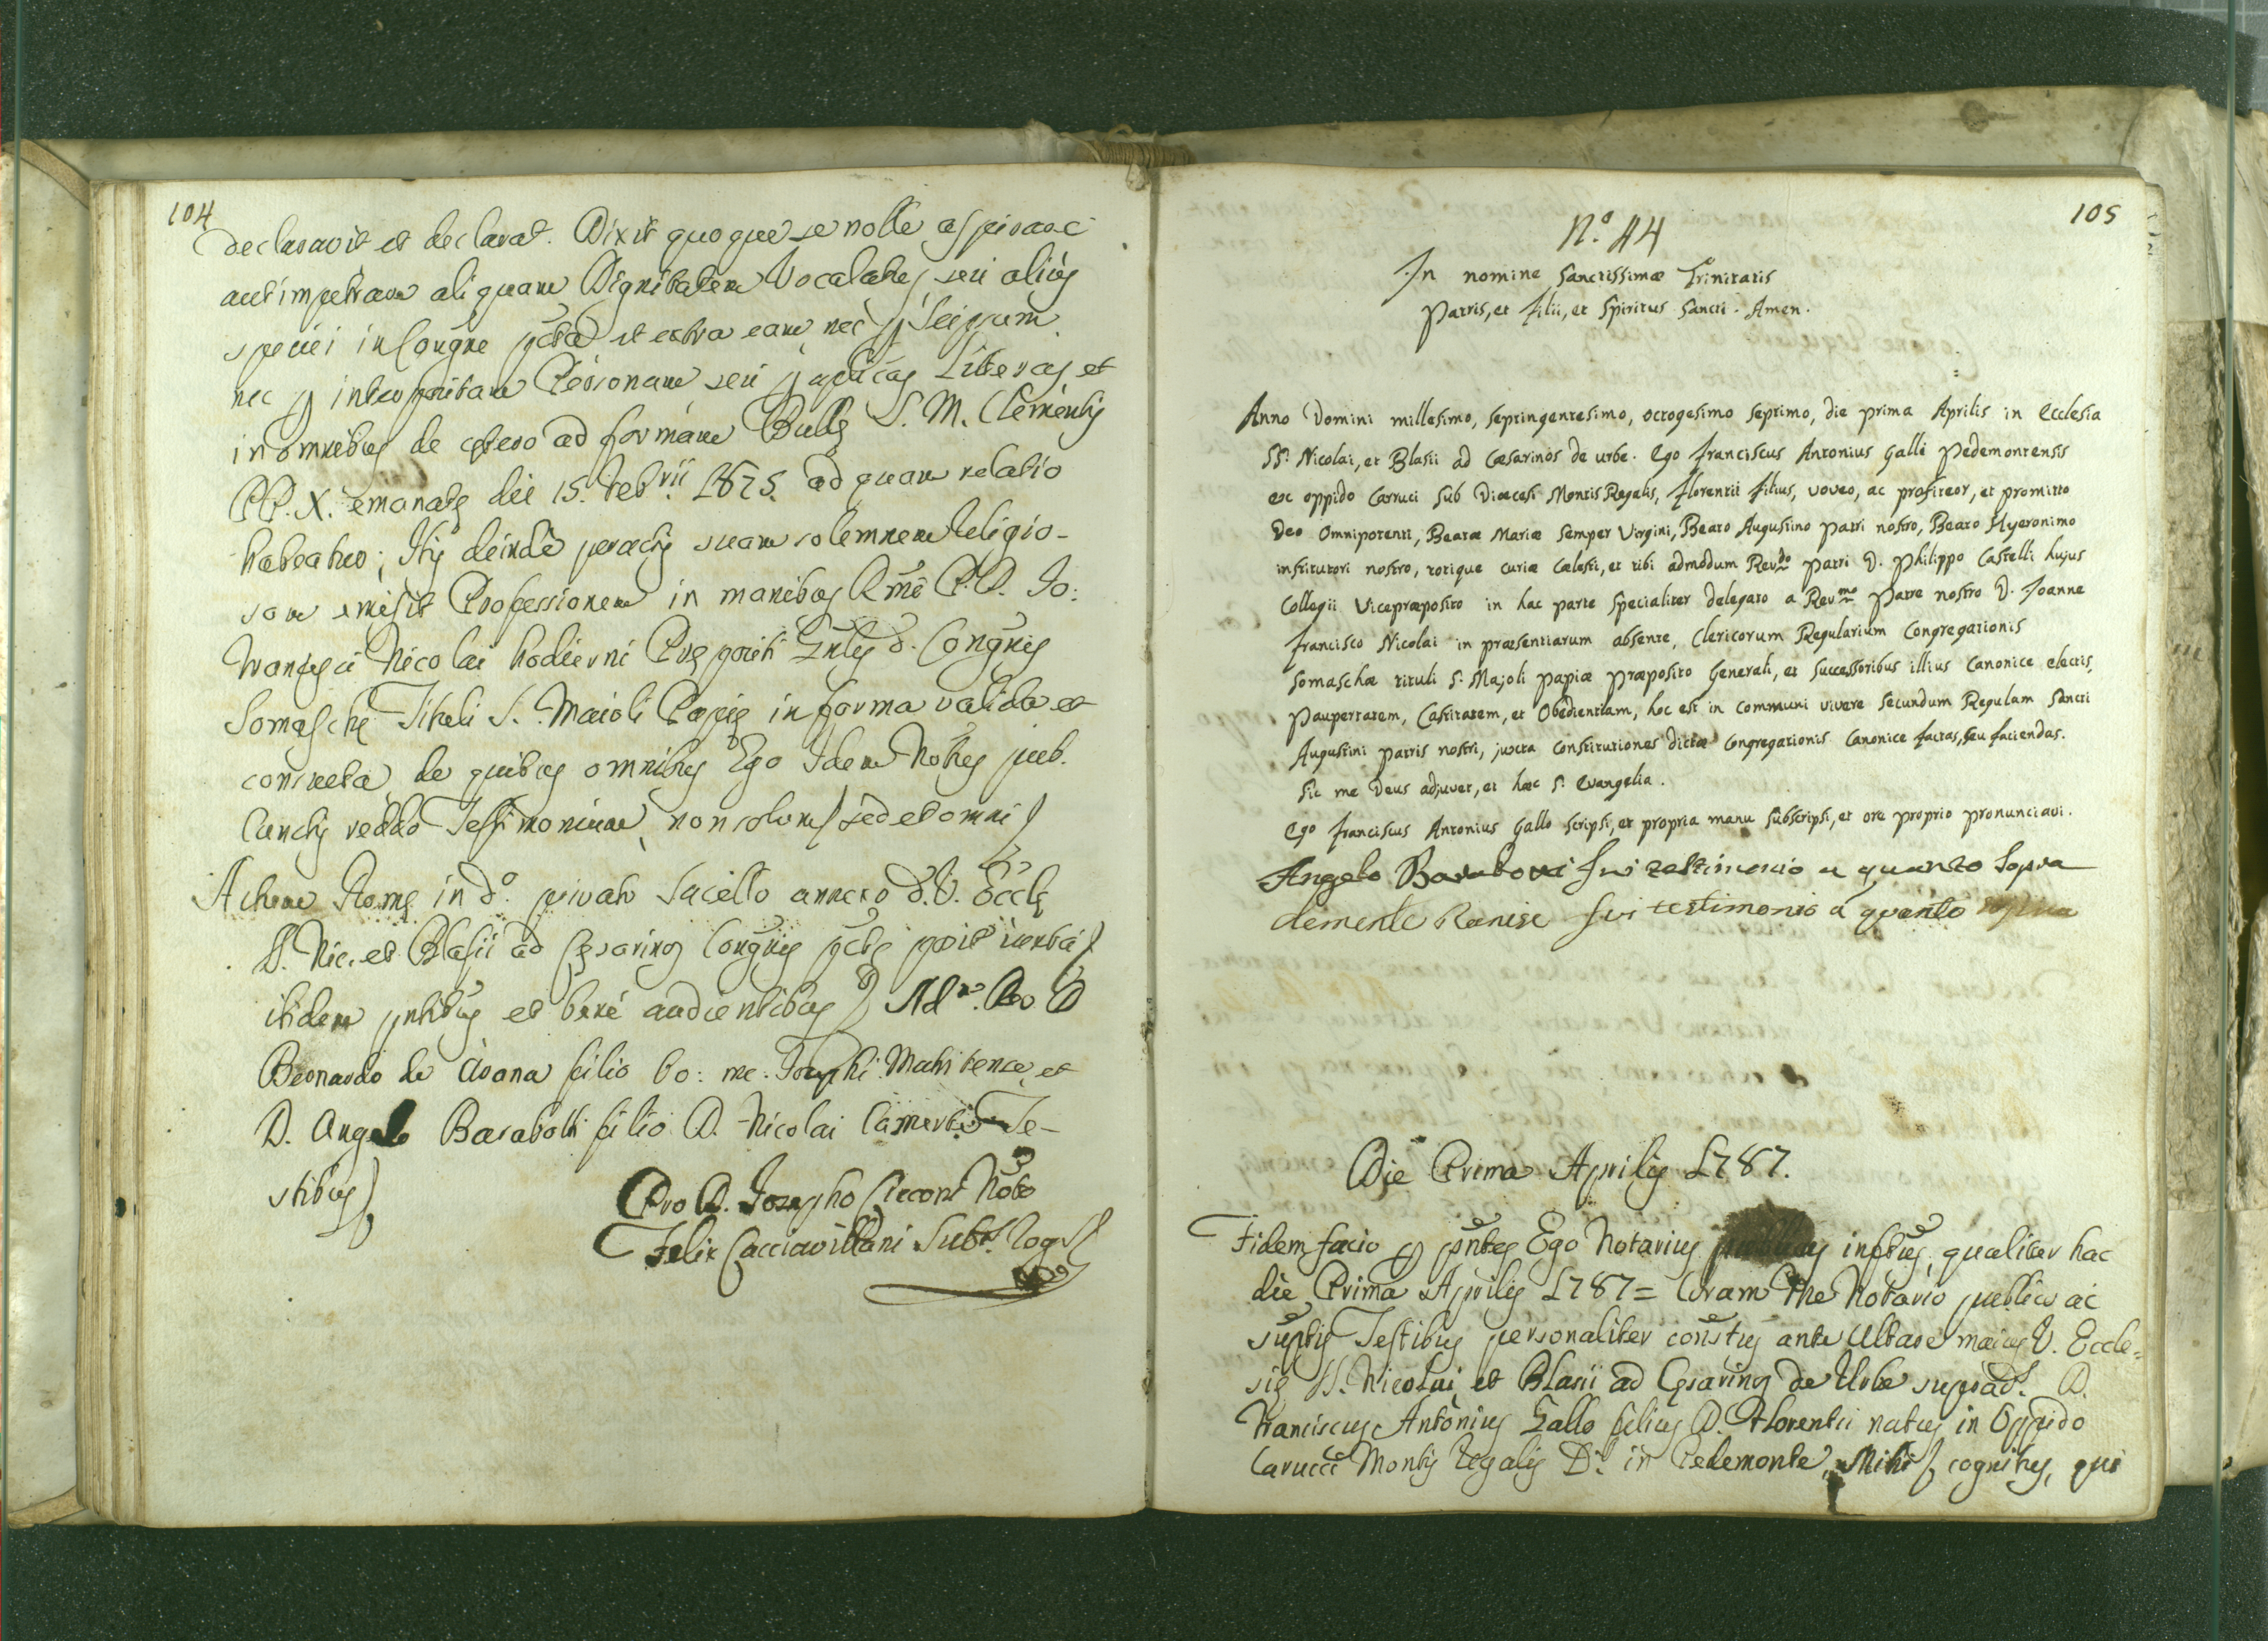 104
declaravit et declarat. Dixit quoque se nolle aspirare
aut impetrare aliquam Dignitatem Vocalatus seu alius
speciei in Congne pcta et extra eam, nec p seipsum
nec p interpositam Personam, seu p aplicas Literas et
in omnibus de cetero ad formam Bulle S. M. Clementis
PP. X. emanate die 15. Feb.rii 1675. ad quam relatio
habeatur; Itis deinde peractis suam solemnem Religio-
sam emisit Professionem in manibus Rmi P. D. Jo:
Francisci Nicolai hodierni Prepositi Gnlis d. Congnis
Somasche Tituli S. Maioli Papie in forma valida et
consueta, de quibus omnibus Ego Idem Notrius pub.
Cunctis reddo Testimonium, non solum sed et omni
Actum Rome in d.º privato Sacello annexo d. V. Eccle
SS. Nic. et Blasii ad Cesarinos Congnis pcte
itidem pntibus et bene audientibus Ad.m Rdo D
Bernardo de Avana filio bo: me: Josephi et
D. Angelo Barabotti filio D. Nicolai Te-
stibus
Pro D. Josepho Cicconi Notro
Felix Cacciavillani Subs. Rog.
105
N.º 44
In nomine Sanctissimæ Trinitatis
Patris, et Filii, et Spiritus Sancti. Amen.
Anno Domini millesimo, septingentesimo, octogesimo septimo, die prima Aprilis in Ecclesia
SS. Nicolai, et Blasii ad Cæsarinos de urbe. Ego Franciscus Antonius Galli Pedemontensis
ex oppido Carruci sub Diœcesi Montis Regalis, Florentii Filius, voveo, ac profiteor, et promitto
Deo Omnipotenti, Beatæ Mariæ semper Virgini, Beato Augustino Patri nostro, Beato Hyeronimo
institutori nostro, totique curiæ Cælesti, et tibi admodum Rev.do Patri D. Philippo Castelli hujus
Collegii Vicepræposito in hac parte specialiter delegato a Rev.mo Patre nostro D. Joanne
Francisco Nicolai in præsentiarum absente, Clericorum Regularium Congregationis
Somaschæ tituli S. Majoli Papiæ Præposito Generali, et Successoribus illius canonice electis,
Paupertatem, Castitatem, et Obedientiam, hoc est in communi vivere secundum Regulam Sancti
Augustini Patris nostri, juxta Constitutiones dictæ Congregationis Canonice factas, seu faciendas.
Sic me Deus adjuvet, et hæc S. Evangelia.
Ego Franciscus Antonius Gallo scripsi, et propria manu subscripsi, et ore proprio pronunciavi.
Angelo Barabotti fui testimonio a quanto sopra
Clemente Ranise fui testimonio á quanto sopra
Die Prima Aprilis 1787.
Fidem facio p pntes Ego Notarius publicus inftus, qualiter hac
die Prima Aprilis 1787 = Coram Me Notario publico ac
suptis Testibus personaliter constus ante Altare maius V. Eccle=
sie SS. Nicolai et Blasii ad Cesarinos de Urbe suprad. D.
Franciscus Antonius Gallo filius D. Florentii natus in Oppido
Carucci Montis Regalis D. in Pedemonte, Mihi cognitus, qui